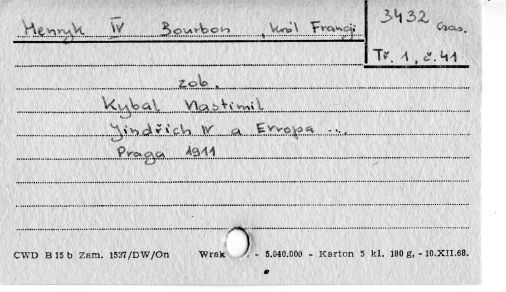 Henryk IV Bourbon, król Francji
3432 czas.
Tř. 1, č. 41
zob.
Kybal Vlastimil
Jindřich IV a Evropa ...
Praga 1911
CWD B 15 b Zam. 1537/DW/On Wrak - 5.040.000 - Karton 5 kl. 180 g, - 10.XII.68.